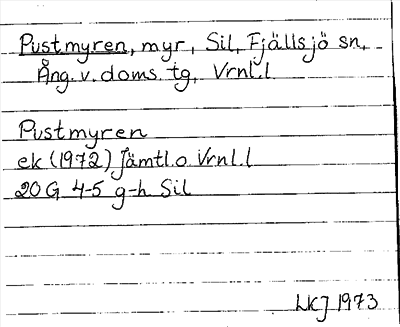 Pustmyren, myr, Sil, Fjällsjö sn,
Ång. v. doms. tg, Vrnl.l
Pustmyren
ek (1972) Jämtl. o Vrnl.l
20 G 4-5 g-h Sil
LKJ 1973